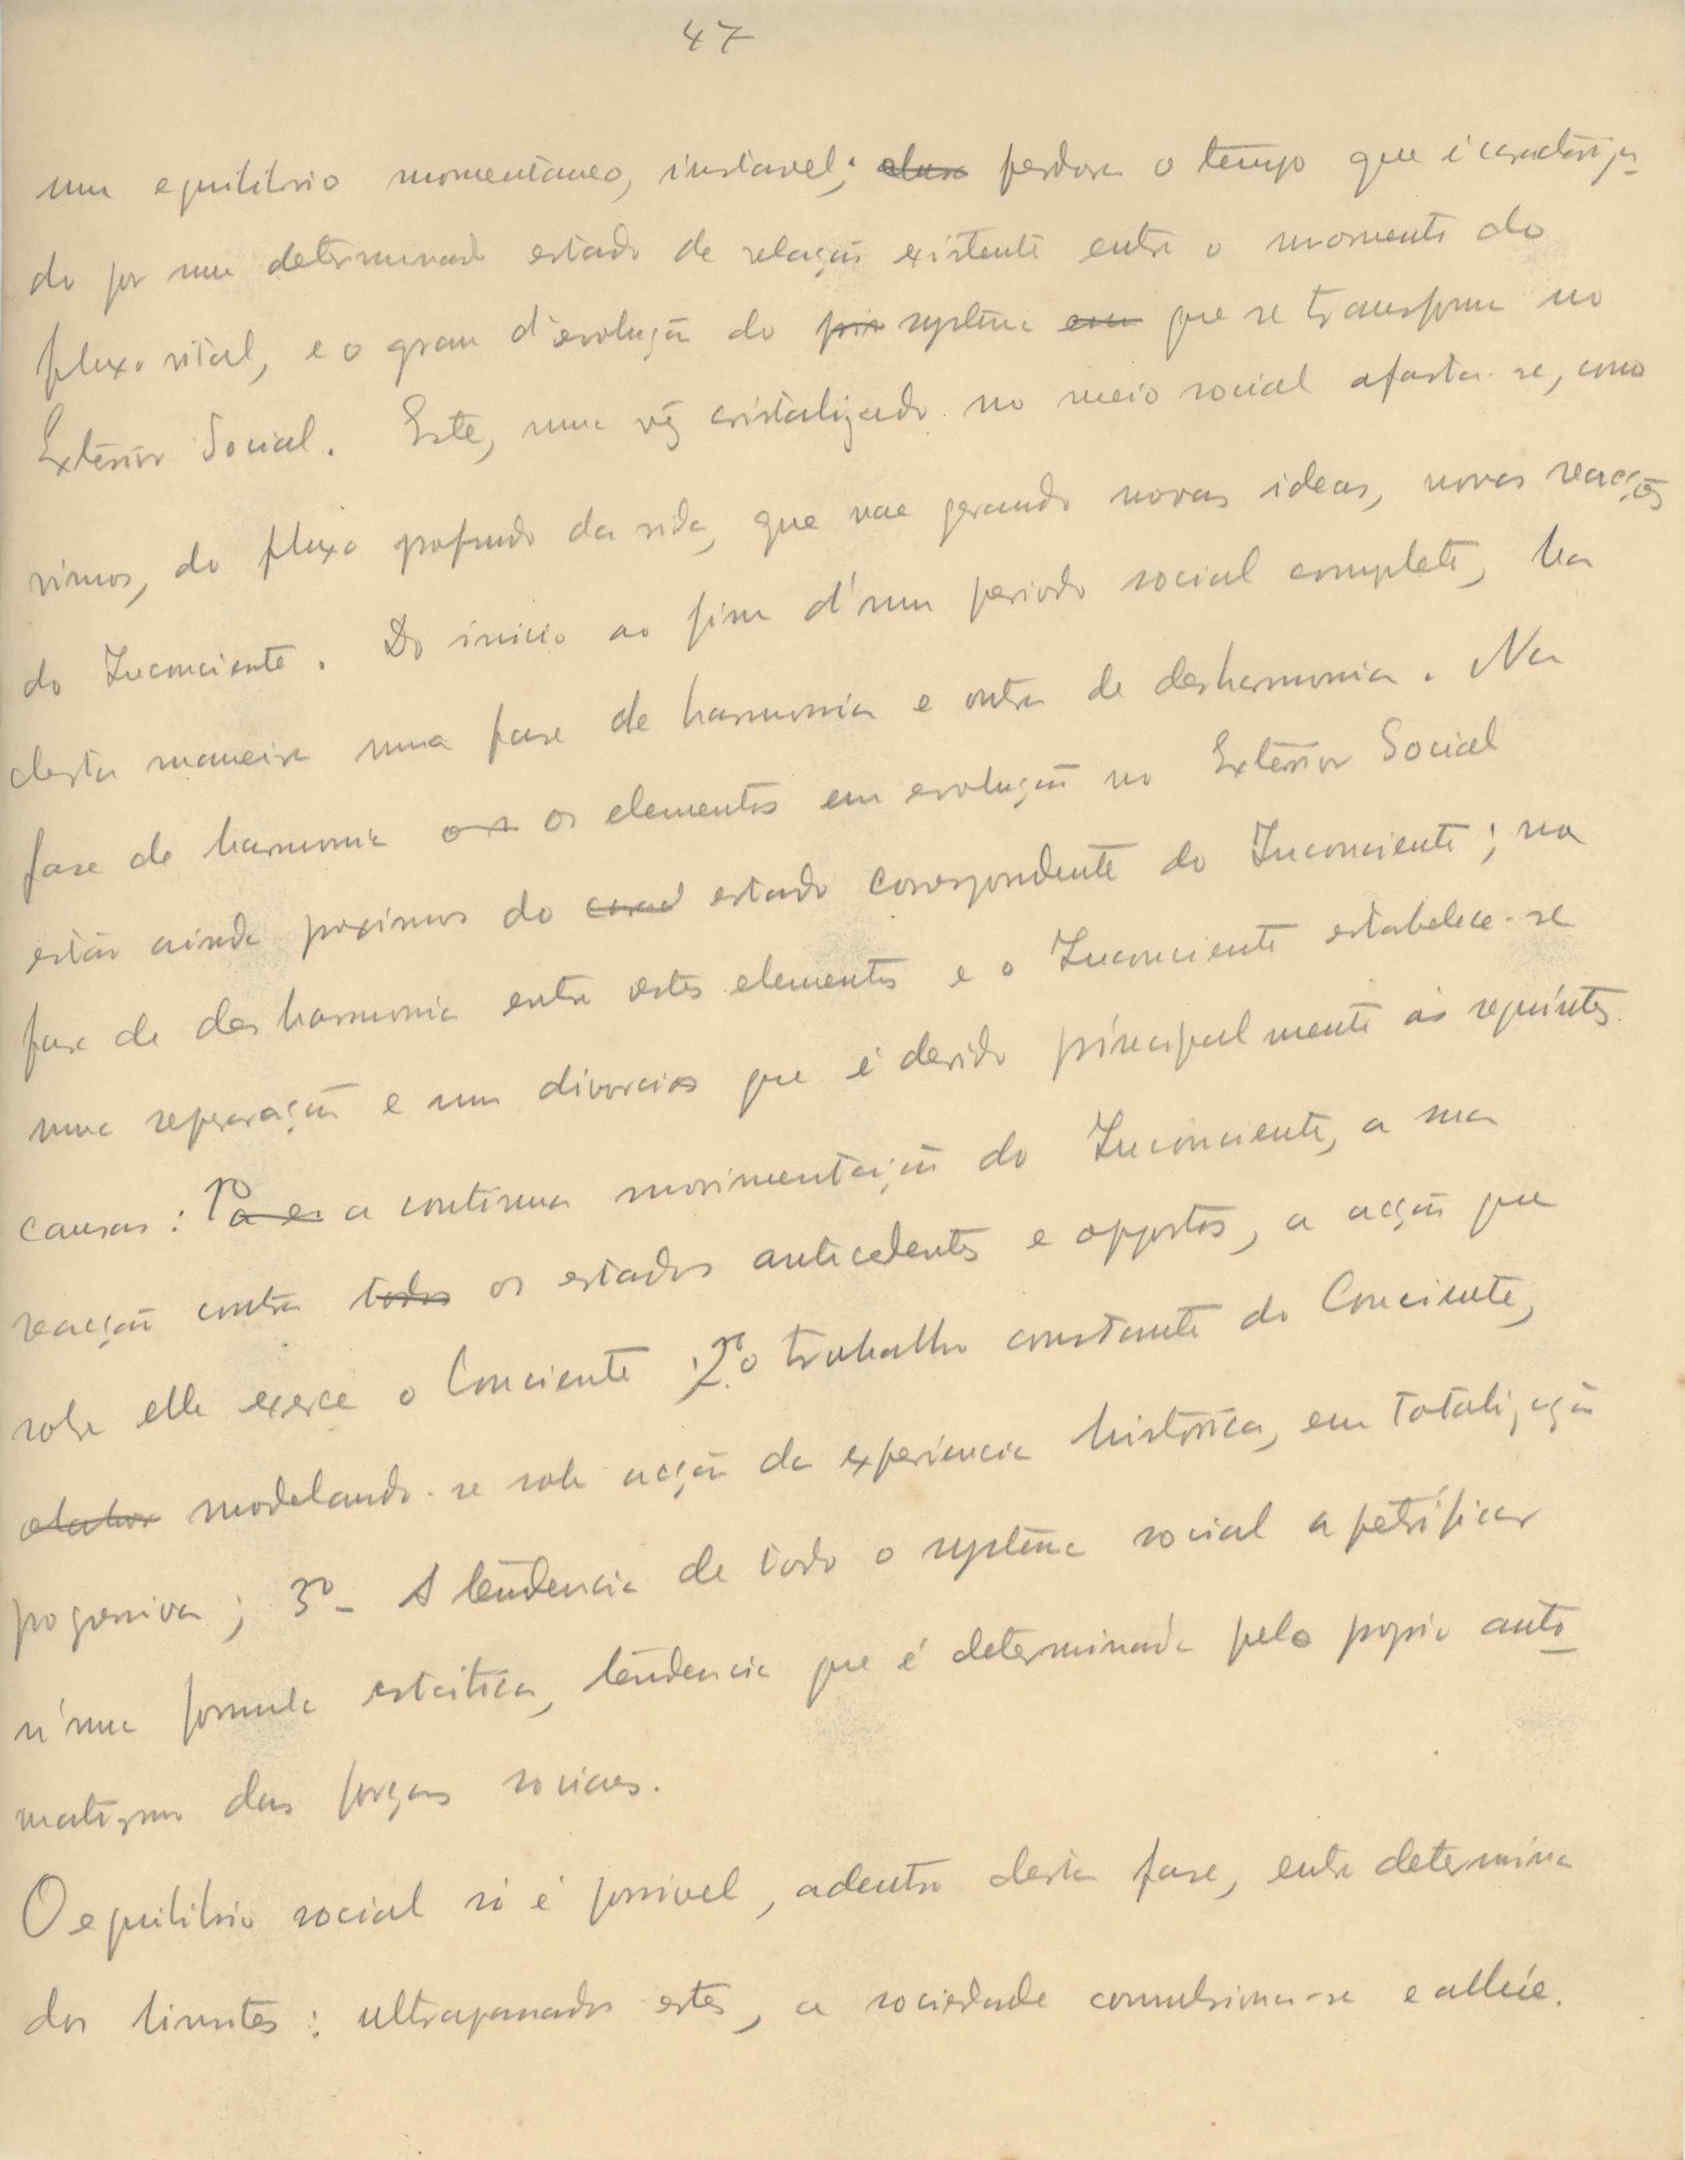 47
um equilibrio momentaneo, instavel; perdura o tempo que é caracteriza-
do por um determinado estado de relação existente entre o momento do
fluxo vital, e o grau d'evolução do systema que se transforma no
Exterior Social. Este, uma vez cristalizado no meio social afasta-se, como
vimos, do fluxo profundo da vida, que vae gerando novas ideas, novas reacções
do Inconciente. Do inicio ao fim d'um periodo social completo, ha
desta maneira uma fase de harmonia e outra de desharmonia. Na
fase de harmonia os elementos em evolução no Exterior Social
estão ainda proximos do estado correspondente do Inconciente; na
fase de desharmonia entre estes elementos e o Inconciente estabelece-se
uma separação e um divorcio que é devido principalmente ás seguintes
causas: 1º a continua movimentação do Inconciente, a sua
reacção contra todos os estados antecedentes e oppostos, a acção que
sobre elle exerce o Conciente; 2º o trabalho constante do Conciente,
elabor modelando-se sob acção da experiencia historica, em totalização
progressiva; 3º - A tendencia de todo o systema social a petrificar
n'uma formula estatica, tendencia que é determinada pelo proprio auto-
matismo das forças sociaes.
O equilibrio social só é possivel, adentro desta fase, entre determina
dos limites: ultrapassados estes, a sociedade convulsiona-se e allue.